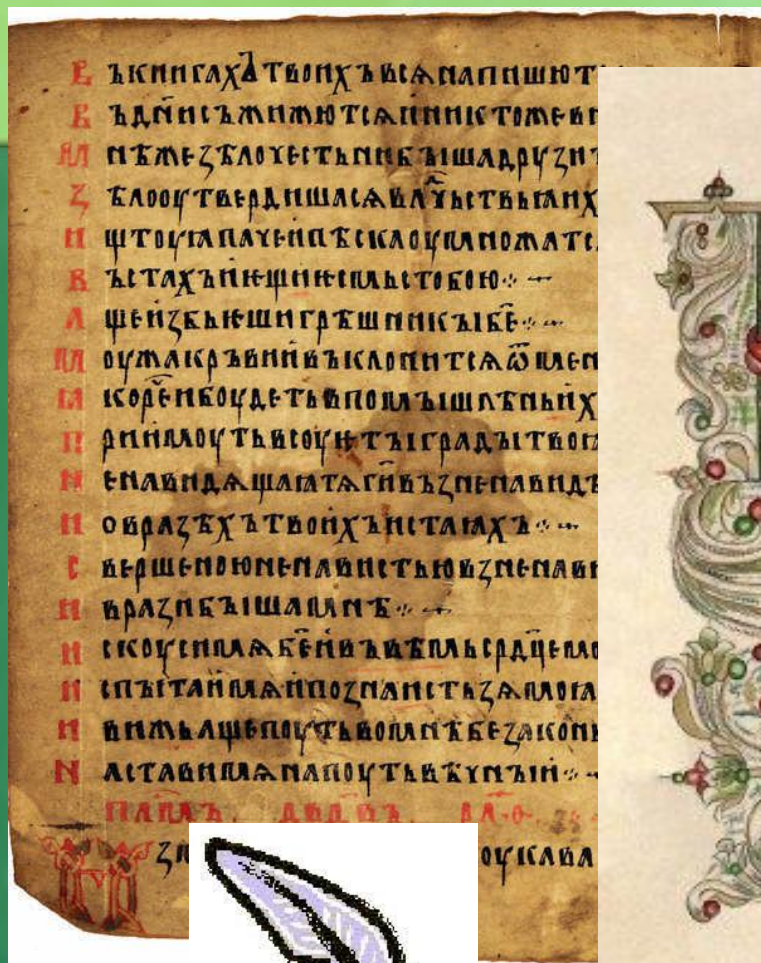 Въкнигахъ твоихъвсѧнапишют
Въдн҃исъжижютсѧинни́ктожевн
Мнѣжеѕѣлоч҇естьнибꙑшадрузи
Ꙁѣлооутвердишасѧвлⷣчьствьꙗихъ
Иштоуꙗпаче́ипѣскаоумножатс
Въстахъиѥщиѥсмьстобою
Ащеиꙁбьѥшигрѣшникꙑбе҃
Моужакръвииꙋклонитсѧѿмен
ꙗкорече́нибоудетьвпомꙑшлѣньих
Приимоутьвсоуѥтꙑградꙑтвоꙗ
Ненавидѧщаꙗтѧги҃въꙁненавидѣ
Иовраꙁѣхътвоихъистаꙗхъ
Свершеноюненавистьювꙁненави
Ивраꙁибꙑшамнѣ
Искоусимѧбе҃ивъвѣмьср҃дцемо
Испꙑтаимѧипоꙁнаистьꙁѧмоꙗ
Ивижьащепоутьвомнѣбеꙁакон
Наставимѧнапоутьвѣчнꙑи
оукава